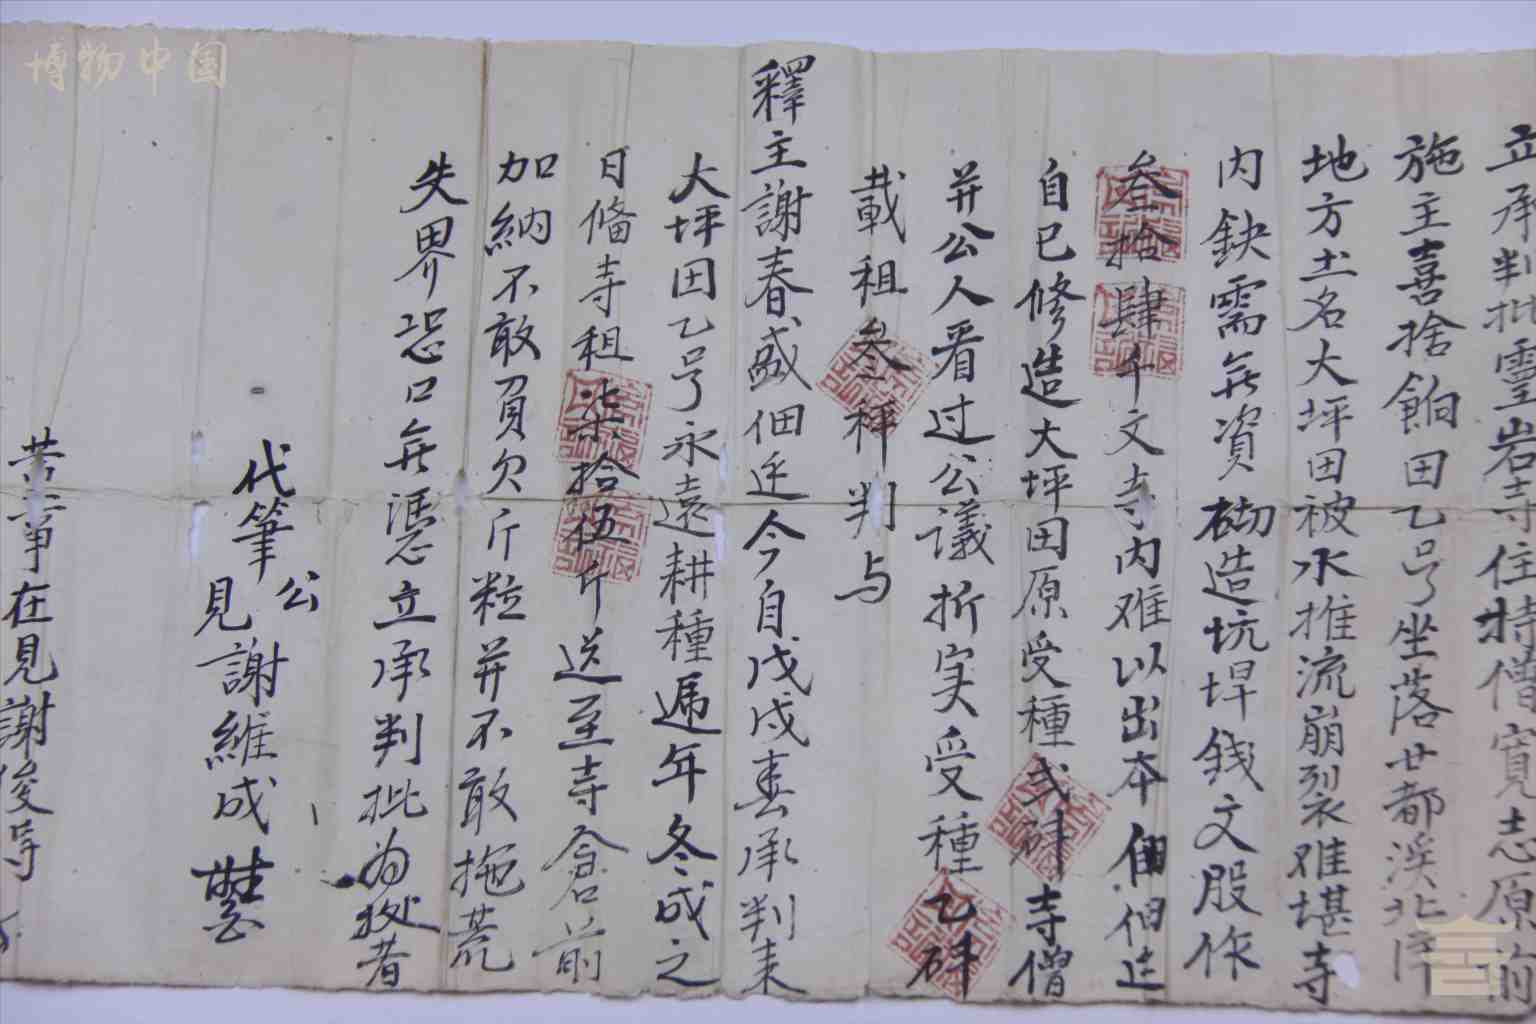 立承判批靈岩寺住持僧寬志原前
施主喜捨餉田乙号坐落廿都溪北洋
地方土名大坪田被水推流崩裂难堪寺
内缺需無資砌造坑垾錢文股作
叁拾肆千文寺内难以出本佃迠
自已修造大坪田原受種弍肆寺僧
并公人看过公議折实受種乙肆
載租叁秤判与
釋主謝春盛佃迠今自戊戌春承判来
大坪田乙号永遠耕種遞年冬成之
日俻寺租柒拾伍斤送至寺倉前
加納不敢負欠斤粒并不敢拖荒
失界恐口無憑立承判批为炤者
代筆公見謝維成
首事在見謝俊
博物中国